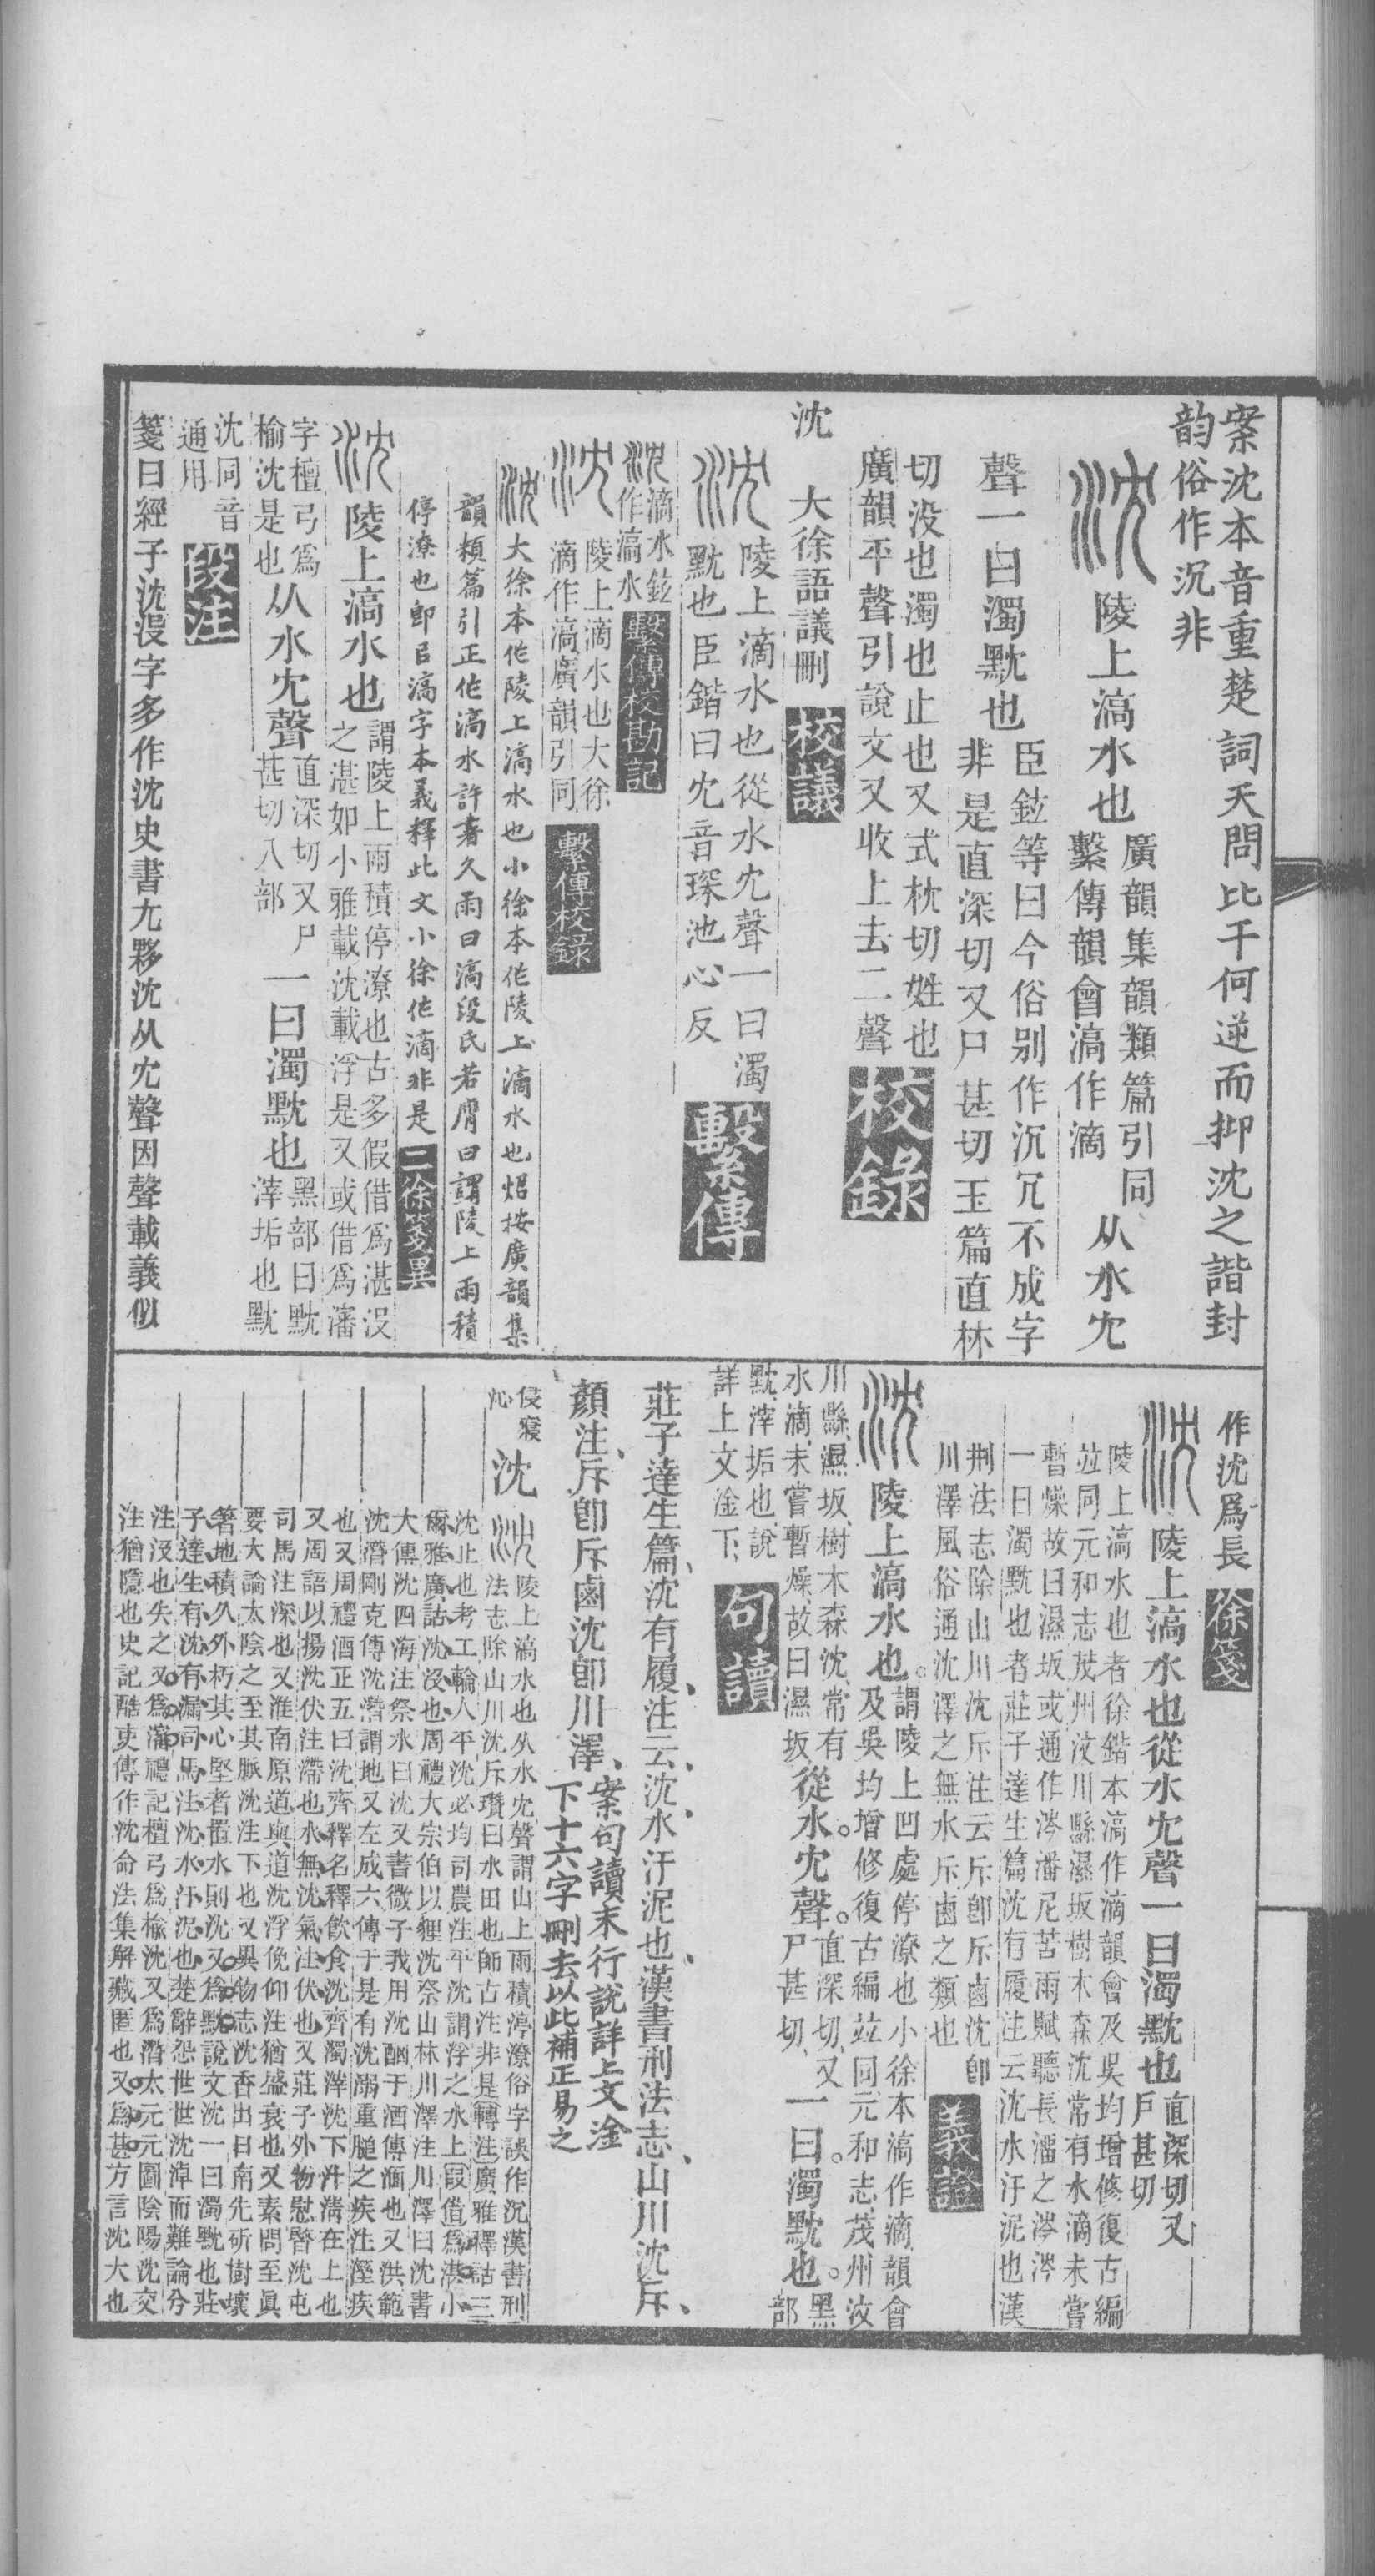 案沈本音重楚詞天問比干何逆而抑沈之諧封
韵俗作沉非
沈陵上滈水也廣韻集韻類篇引同
繫傳韻會滈作滴从水冘
聲一曰濁黕也臣鉉等曰今俗别作沉冗不成字
非是直深切又尸甚切玉篇直林
切没也濁也止也又式枕切姓也
廣韻平聲引說文又收上去二聲校錄
沈 大徐語議刪校議
沈陵上滴水也從水冘聲一曰濁
黕也臣鍇曰冘音琛池心反繫傳
沈滴水鉉
作滈水繫傳校勘記
沈陵上滴水也大徐
滴作滈廣韻引同繫傳校錄
沈大徐本作陵上滈水也小徐本作陵上滴水也炤按廣韻集
韻類篇引正作滈水許書久雨曰滈段氏若膺曰謂陵上雨積
停潦也卽㠯滈字本義釋此文小徐作滴非是二徐箋異
沈陵上滈水也謂陵上雨積停潦也古多假借爲湛没
之湛如小雅載沈載浮是又或借爲瀋
字檀弓爲
榆沈是也从水冘聲直深切又尸
甚切八部一曰濁黕也黑部曰黕
滓垢也黕
沈同音
通用段注
箋曰經子沈沒字多作沈史書尢夥沈从冘聲因聲載義似
作沈爲長徐箋
沈陵上滈水也從水冘聲一曰濁黕也直深切又
尸甚切
陵上滈水也者徐鍇本滈作滴韻會及吳均增修復古編
竝同元和志茂州汶川縣濕坂樹木森沈常有水滴未嘗
暫燥故曰濕坂或通作涔潘尼苦雨賦聽長潘之涔涔
一曰濁黕也者莊子達生篇沈有履注云沈水汙泥也漢
荆法志除山川沈斥注云斥卽斥鹵沈卽
川澤風俗通沈澤之無水斥鹵之類也義證
沈陵上滈水也。謂陵上凹處停潦也小徐本滈作滴韻會
及吳均增修復古編竝同元和志、茂州汶
川縣、濕坂、樹木森沈、常有
水滴、未嘗暫燥、故曰濕坂、從水。冘聲。直深切、又
尸甚切、一曰。濁黕也。黑
部
黕、滓垢也、說
詳上文淦下、句讀
莊子達生篇、沈有履注云、沈水汙泥也、漢書刑法志、山川沈斥、
顏注、斥卽斥鹵沈卽川澤、案句讀末行說詳上文淦
下十六字刪去以此補正易之
侵寢
沁 沈 沈陵上滈水也从水冘聲謂山上雨積渟潦俗字誤作沉漢書刑
法志除山川沈斥瓚曰水田也師古注非是轉注廣雅釋詁三
沈止也考工輪人平沈必均司農注平沈謂浮之水上叚借爲湛小
爾雅廣詁沈没也周禮大宗伯以貍沈祭山林川澤注川澤曰沈書
大傳沈四海注祭水曰沈又書微子我用沈酗于酒傳湎也又洪範
沈潛剛克傳沈潛謂地又左成六傳于是有沈溺重膇之疾注溼疾
也又周禮酒正五曰沈齊釋名釋飲食沈齊濁滓沈下汁淸在上也
又周語以揚沈伏注滯也水無沈氣注伏也又莊子外物慰暋沈屯
司馬注深也又淮南原道與道沈浮俛仰注猶盛衰也又素問至眞
要大論太陰之至其脈沈注下也又異物志沈香出日南先斫樹壞
箸地積久外朽其心堅者置水則沈又爲黕說文沈一曰濁黕也莊
子達生有沈有漏司馬注沈水汙泥也楚辭怨世世沈淖而難論分
注没也失之又爲瀋禮記檀弓爲榆沈又爲潛太元元圖陰陽沈交
注猶隱也史記酷吏傳作沈命法集解藏匿也又爲甚方言沈大也